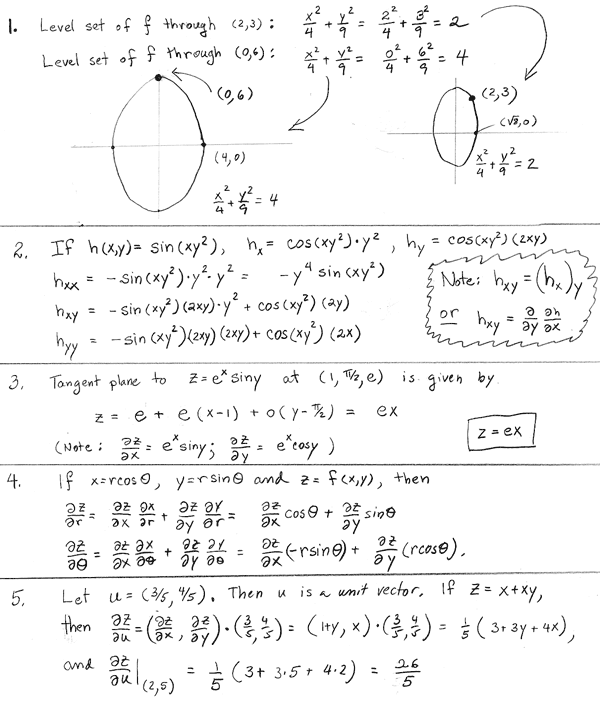 1. Level set of f through (2,3): x²/4 + y²/9 = 2²/4 + 3²/9 = 2
Level set of f through (0,6): x²/4 + y²/9 = 0²/4 + 6²/9 = 4
(0,6)
(4,0)
x²/4 + y²/9 = 4
(2,3)
(√8,0)
x²/4 + y²/9 = 2
2. If h(x,y) = sin(xy²), hx = cos(xy²)·y², hy = cos(xy²)(2xy)
hxx = -sin(xy²)·y²·y² = -y⁴ sin(xy²)
hxy = -sin(xy²)(2xy)·y² + cos(xy²)(2y)
hyy = -sin(xy²)(2xy)(2xy) + cos(xy²)(2x)
Note: hxy = (hx)y
or hxy = ∂/∂y ∂h/∂x
3. Tangent plane to z = eˣ sin y at (1, π/2, e) is given by
z = e + e(x-1) + 0(y-π/2) = ex
z = ex
(Note: ∂z/∂x = eˣ sin y; ∂z/∂y = eˣ cos y)
4. If x = r cos θ, y = r sin θ and z = f(x,y), then
∂z/∂r = ∂z/∂x ∂x/∂r + ∂z/∂y ∂y/∂r = ∂z/∂x cos θ + ∂z/∂y sin θ
∂z/∂θ = ∂z/∂x ∂x/∂θ + ∂z/∂y ∂y/∂θ = ∂z/∂x (-r sin θ) + ∂z/∂y (r cos θ).
5. Let u = (3/5, 4/5). Then u is a unit vector. If z = x + xy,
then ∂z/∂u = (∂z/∂x, ∂z/∂y)·(3/5, 4/5) = (1+y, x)·(3/5, 4/5) = 1/5 (3 + 3y + 4x),
and ∂z/∂u |(2,5) = 1/5 (3 + 3·5 + 4·2) = 26/5